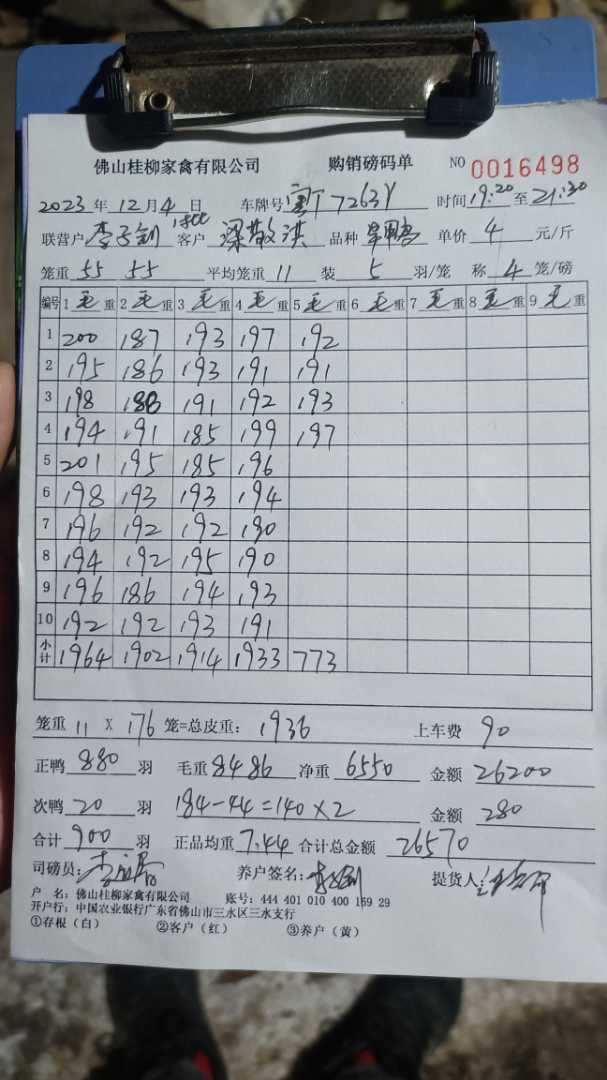 佛山桂柳家禽有限公司 购销磅码单 NO 0016498
2023年12月4日 车牌号 7263Y 时间19:20至21:30
联营户李子剑 客户梁敬淇 品种 单价4元/斤
笼重55 55 平均笼重11 装5羽/笼 称4笼/磅
编号 1毛重 2毛重 3毛重 4毛重 5毛重 6毛重 7毛重 8毛重 9毛重
1 200 187 193 197 192
2 195 186 193 191 191
3 198 188 191 192 193
4 194 191 185 199 197
5 201 195 185 196
6 198 193 193 194
7 196 192 192 190
8 194 192 195 190
9 196 186 194 193
10 192 192 193 191
小计 1964 1902 1914 1933 773
笼重11×176笼=总皮重:1936 上车费90
正鸭880羽 毛重8486 净重6550 金额26200
次鸭20羽 184-44=140×2 金额280
合计900羽 正品均重7.44 合计总金额26570
司磅员: 养户签名: 提货人:
户 名:佛山桂柳家禽有限公司 账号:444 401 010 400 169 29
开户行:中国农业银行广东省佛山市三水区三水支行
①存根(白) ②客户(红) ③养户(黄)